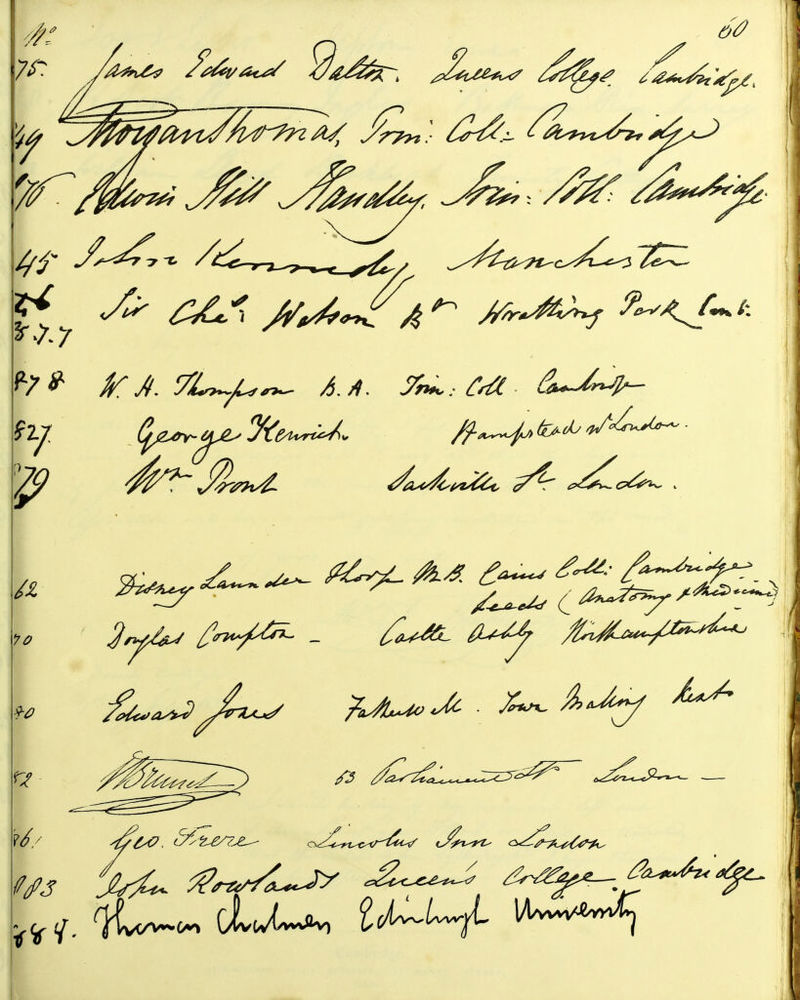 No. 60
75. James Edward Dalton. Queens College. Cambridge.
49 Morgan Thomas, Trin: Coll: Cambridge
76. Edwin Hill Handley. Trin: Coll: Cambridge
45 John Kennedy Manchester
Sir Chas: Watson Bt Wratting Park Camb:
7.7
878 W. H. Thompson B.A. Trin: Coll. Cambridge
827. George Kenrick Hampstead nr London.
79 Wm Prout Sackville St London.
62 Disney Launder Thorp M.B. Caius Coll: Cambridge
Leeds (Anatomy & Medicine)
70 Douglas Compton - Castle Ashby Northamptonshire
80 Edward Jones Town Malling Kent
82 Brunel 53 Parliament St London -
861 Geo. Frere Lincolns Inn London
883 John Rowlands Queen's College Cambridge
884. Thomas Chalmers Edinburgh University